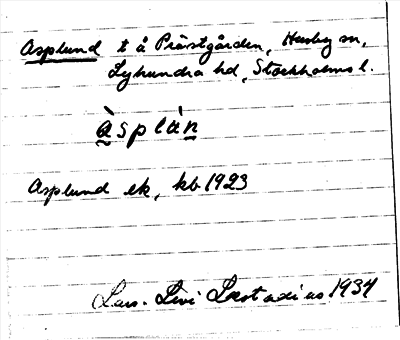 Asplund t å Prästgården, Husby sn,
Lyhundra hd, Stockholms l.
àsplàn
Asplund ek, kb 1923
Lars-Levi Læstadius 1934